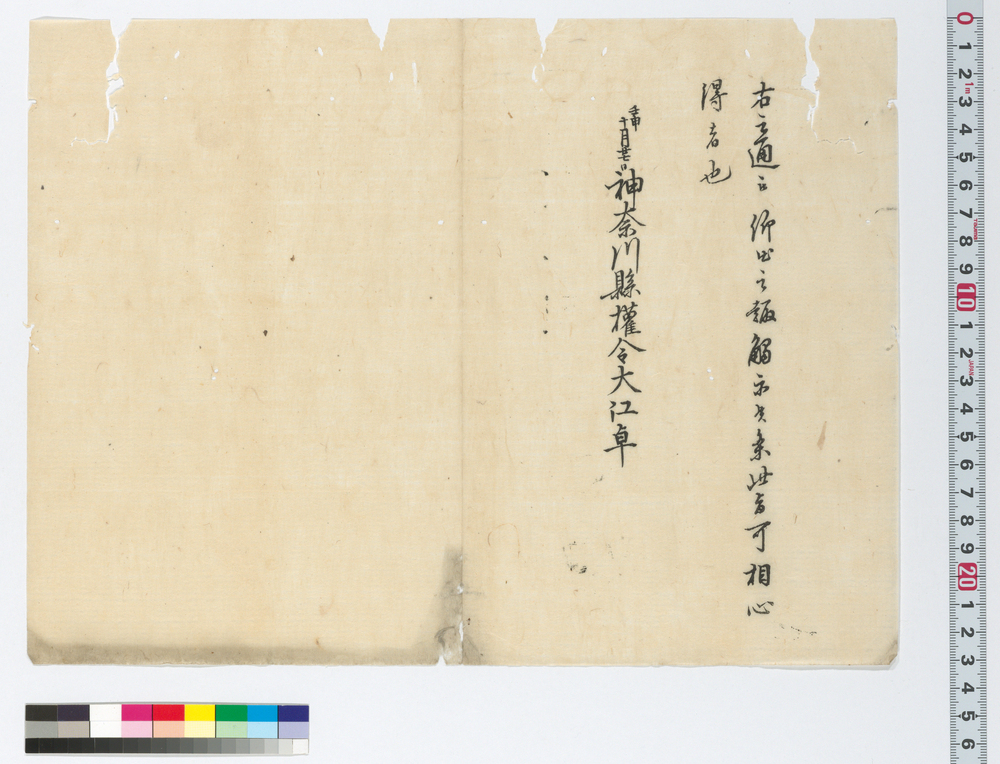 右之通被 仰出之趣觸示候条此旨可相心
得者也
壬申
十月廿七日
神奈川縣權令大江卓
0 1 2 3 4 5 6 7 8 9 10 1 2 3 4 5 6 7 8 9 20 1 2 3 4 5 6
1m
JAPAN